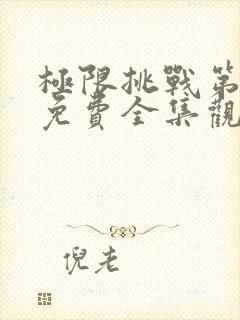 極限挑戰第
免費全集觀
倪老